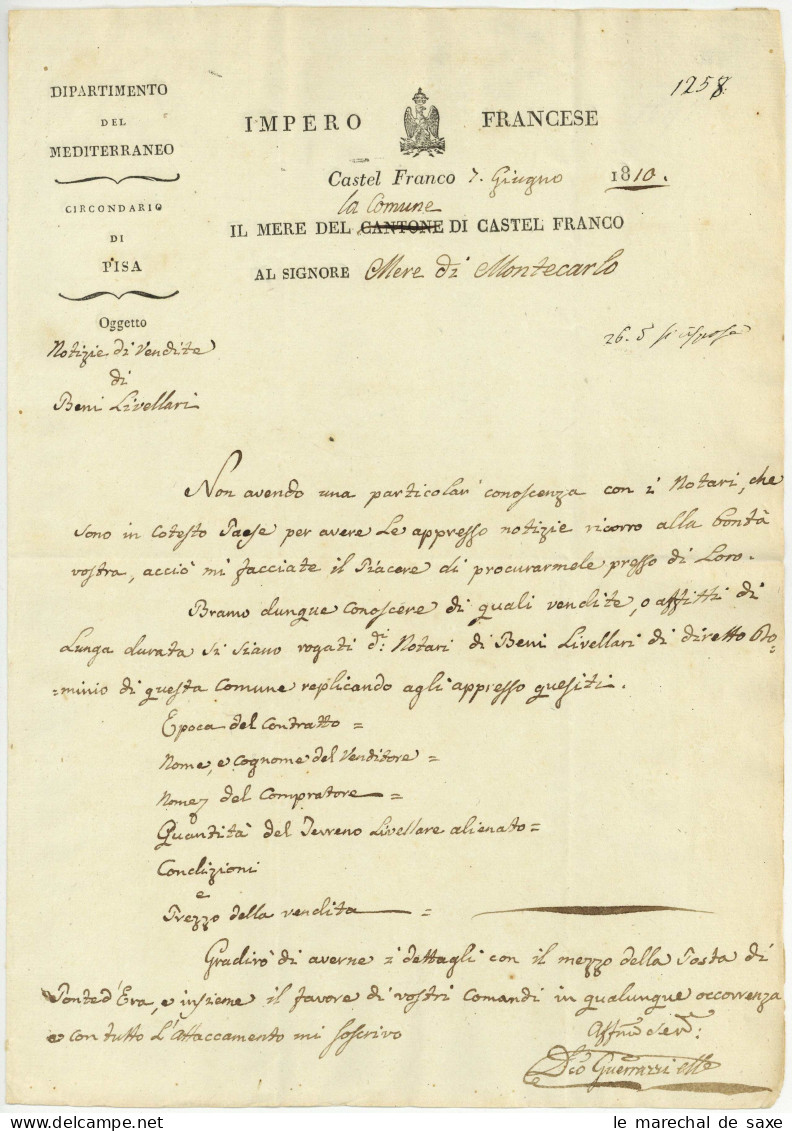 1258
DIPARTIMENTO
DEL
MEDITERRANEO
CIRCONDARIO
DI
PISA
IMPERO FRANCESE
Castel Franco 7. Giugno 1810.
la Comune
IL MERE DEL CANTONE DI CASTEL FRANCO
AL SIGNORE Mere di Montecarlo
Oggetto
Notizie di Vendite
di
Beni Livellari
26. d
Non avendo una particolar conoscenza con i Notari, che
sono in cotesto Paese per avere le appresso notizie ricorro alla bontà
vostra, acciò mi facciate il Piacere di procurarmele presso di Loro.
Bramo dunque conoscere di quali vendite, o affitti di
Lunga durata si siano rogati di: Notari di Beni Livellari di diretto Do-
=minio di questa Comune replicando agli appresso quesiti.
Epoca del Contratto =
Nome, e Cognome del Venditore =
Nome del Compratore =
Quantità del Terreno Livellare alienato =
Condizioni
e
Prezzo della vendita =
Gradirò di averne i dettagli con il mezzo della Posta di
Ponted'Era, e insieme il favore di vostri Comandi in qualunque occorrenza
e con tutto L'Attaccamento mi soscrivo
Affmo Serv:
Guerrazzi
le marechal de saxe